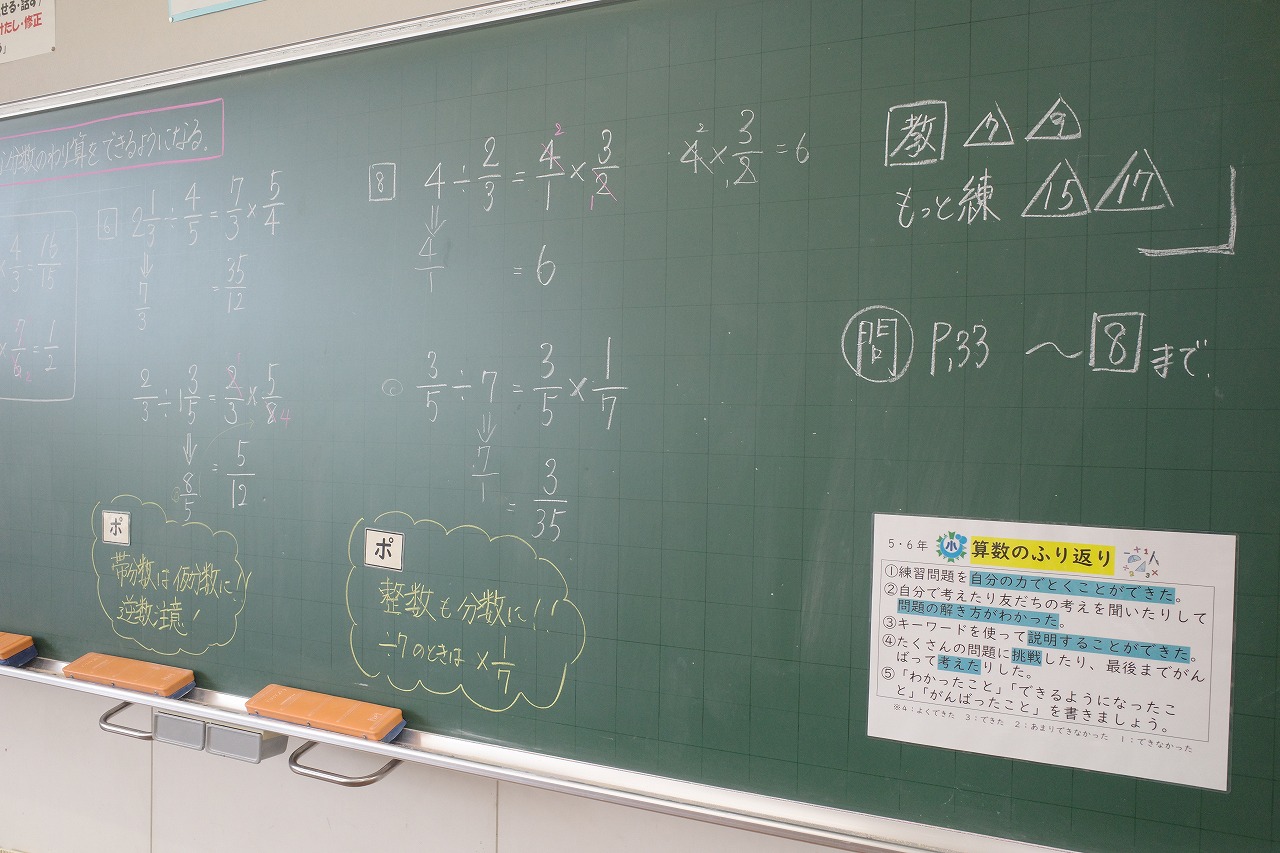 せる・話す
けたし・修正
分数のわり算をできるようになる。
4/3 = 16/15
× 7/6 = 1/2
6 2 1/3 ÷ 4/5 = 7/3 × 5/4
7/3 = 35/12
2/3 ÷ 1 3/5 = 2/3 × 5/8 4
8/5 = 5/12
ポ
帯分数は仮分数に!!
逆数注意!
8 4 ÷ 2/3 = 4/1 × 3/2
2 1
4/1 = 6
4 × 3/2 = 6
2 1
3/5 ÷ 7 = 3/5 × 1/7
7/1 = 3/35
ポ
整数も分数に!!
÷7のときは × 1/7
教 7 9
もっと練 15 17
問 P.33 〜 8 まで
5・6年 小 算数のふり返り
①練習問題を自分の力でとくことができた。
②自分で考えたり友だちの考えを聞いたりして
問題の解き方がわかった。
③キーワードを使って説明することができた。
④たくさんの問題に挑戦したり、最後までがん
ばって考えたりした。
⑤「わかったこと」「できるようになったこ
と」「がんばったこと」を書きましょう。
※4：よくできた 3：できた 2：あまりできなかった 1：できなかった